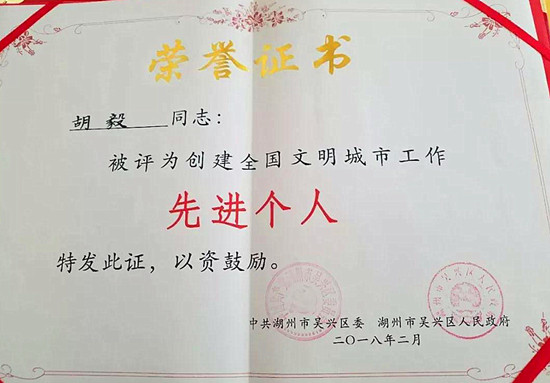 荣誉证书
胡毅 同志：
被评为创建全国文明城市工作
先进个人
特发此证，以资鼓励。
中共湖州市吴兴区委 湖州市吴兴区人民政府
二〇一八年二月